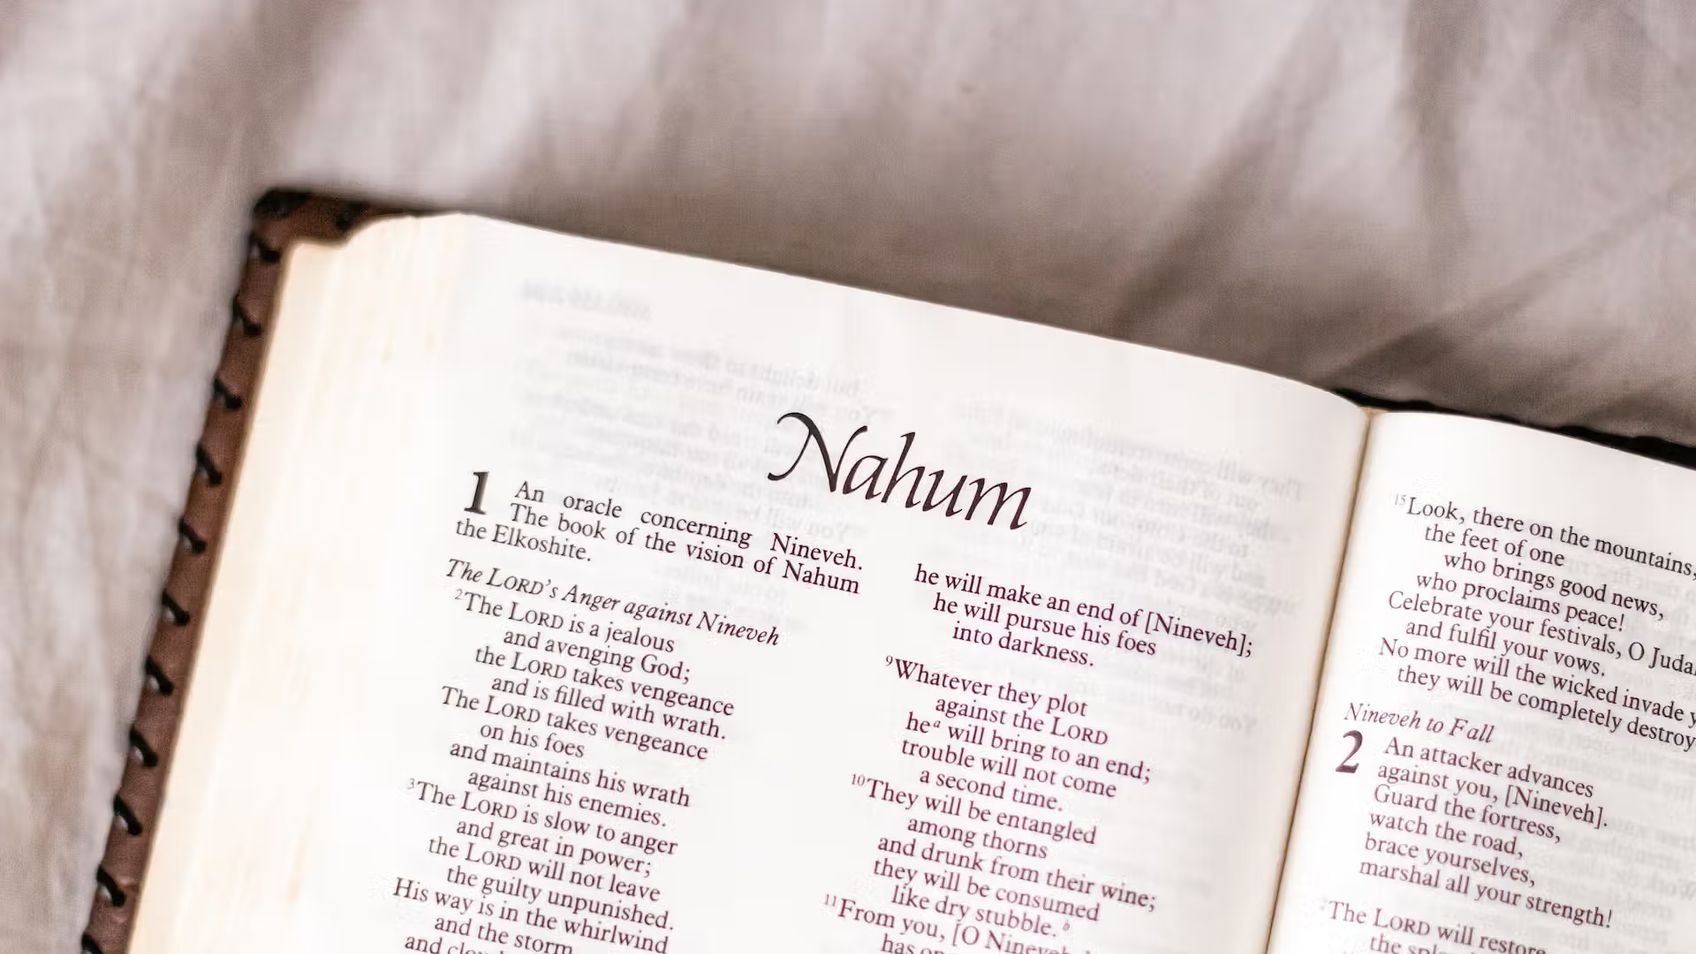 Nahum
1 An oracle concerning Nineveh.
The book of the vision of Nahum
the Elkoshite.
The LORD's Anger against Nineveh
2The LORD is a jealous
and avenging God;
the LORD takes vengeance
and is filled with wrath.
The LORD takes vengeance
on his foes
and maintains his wrath
against his enemies.
3The LORD is slow to anger
and great in power;
the LORD will not leave
the guilty unpunished.
His way is in the whirlwind
and the storm
and
he will make an end of [Nineveh];
he will pursue his foes
into darkness.
9Whatever they plot
against the LORD
heª will bring to an end;
trouble will not come
a second time.
10They will be entangled
among thorns
and drunk from their wine;
they will be consumed
like dry stubble.b
11From you, [O
has
15Look, there on the mountains,
the feet of one
who brings good news,
who proclaims peace!
Celebrate your festivals, O
and fulfill your vows.
No more will the wicked invade
they will be completely
Nineveh to Fall
2 An attacker advances
against you, [Nineveh].
Guard the fortress,
watch the road,
brace yourselves,
marshal all your strength!
The LORD will restore
the